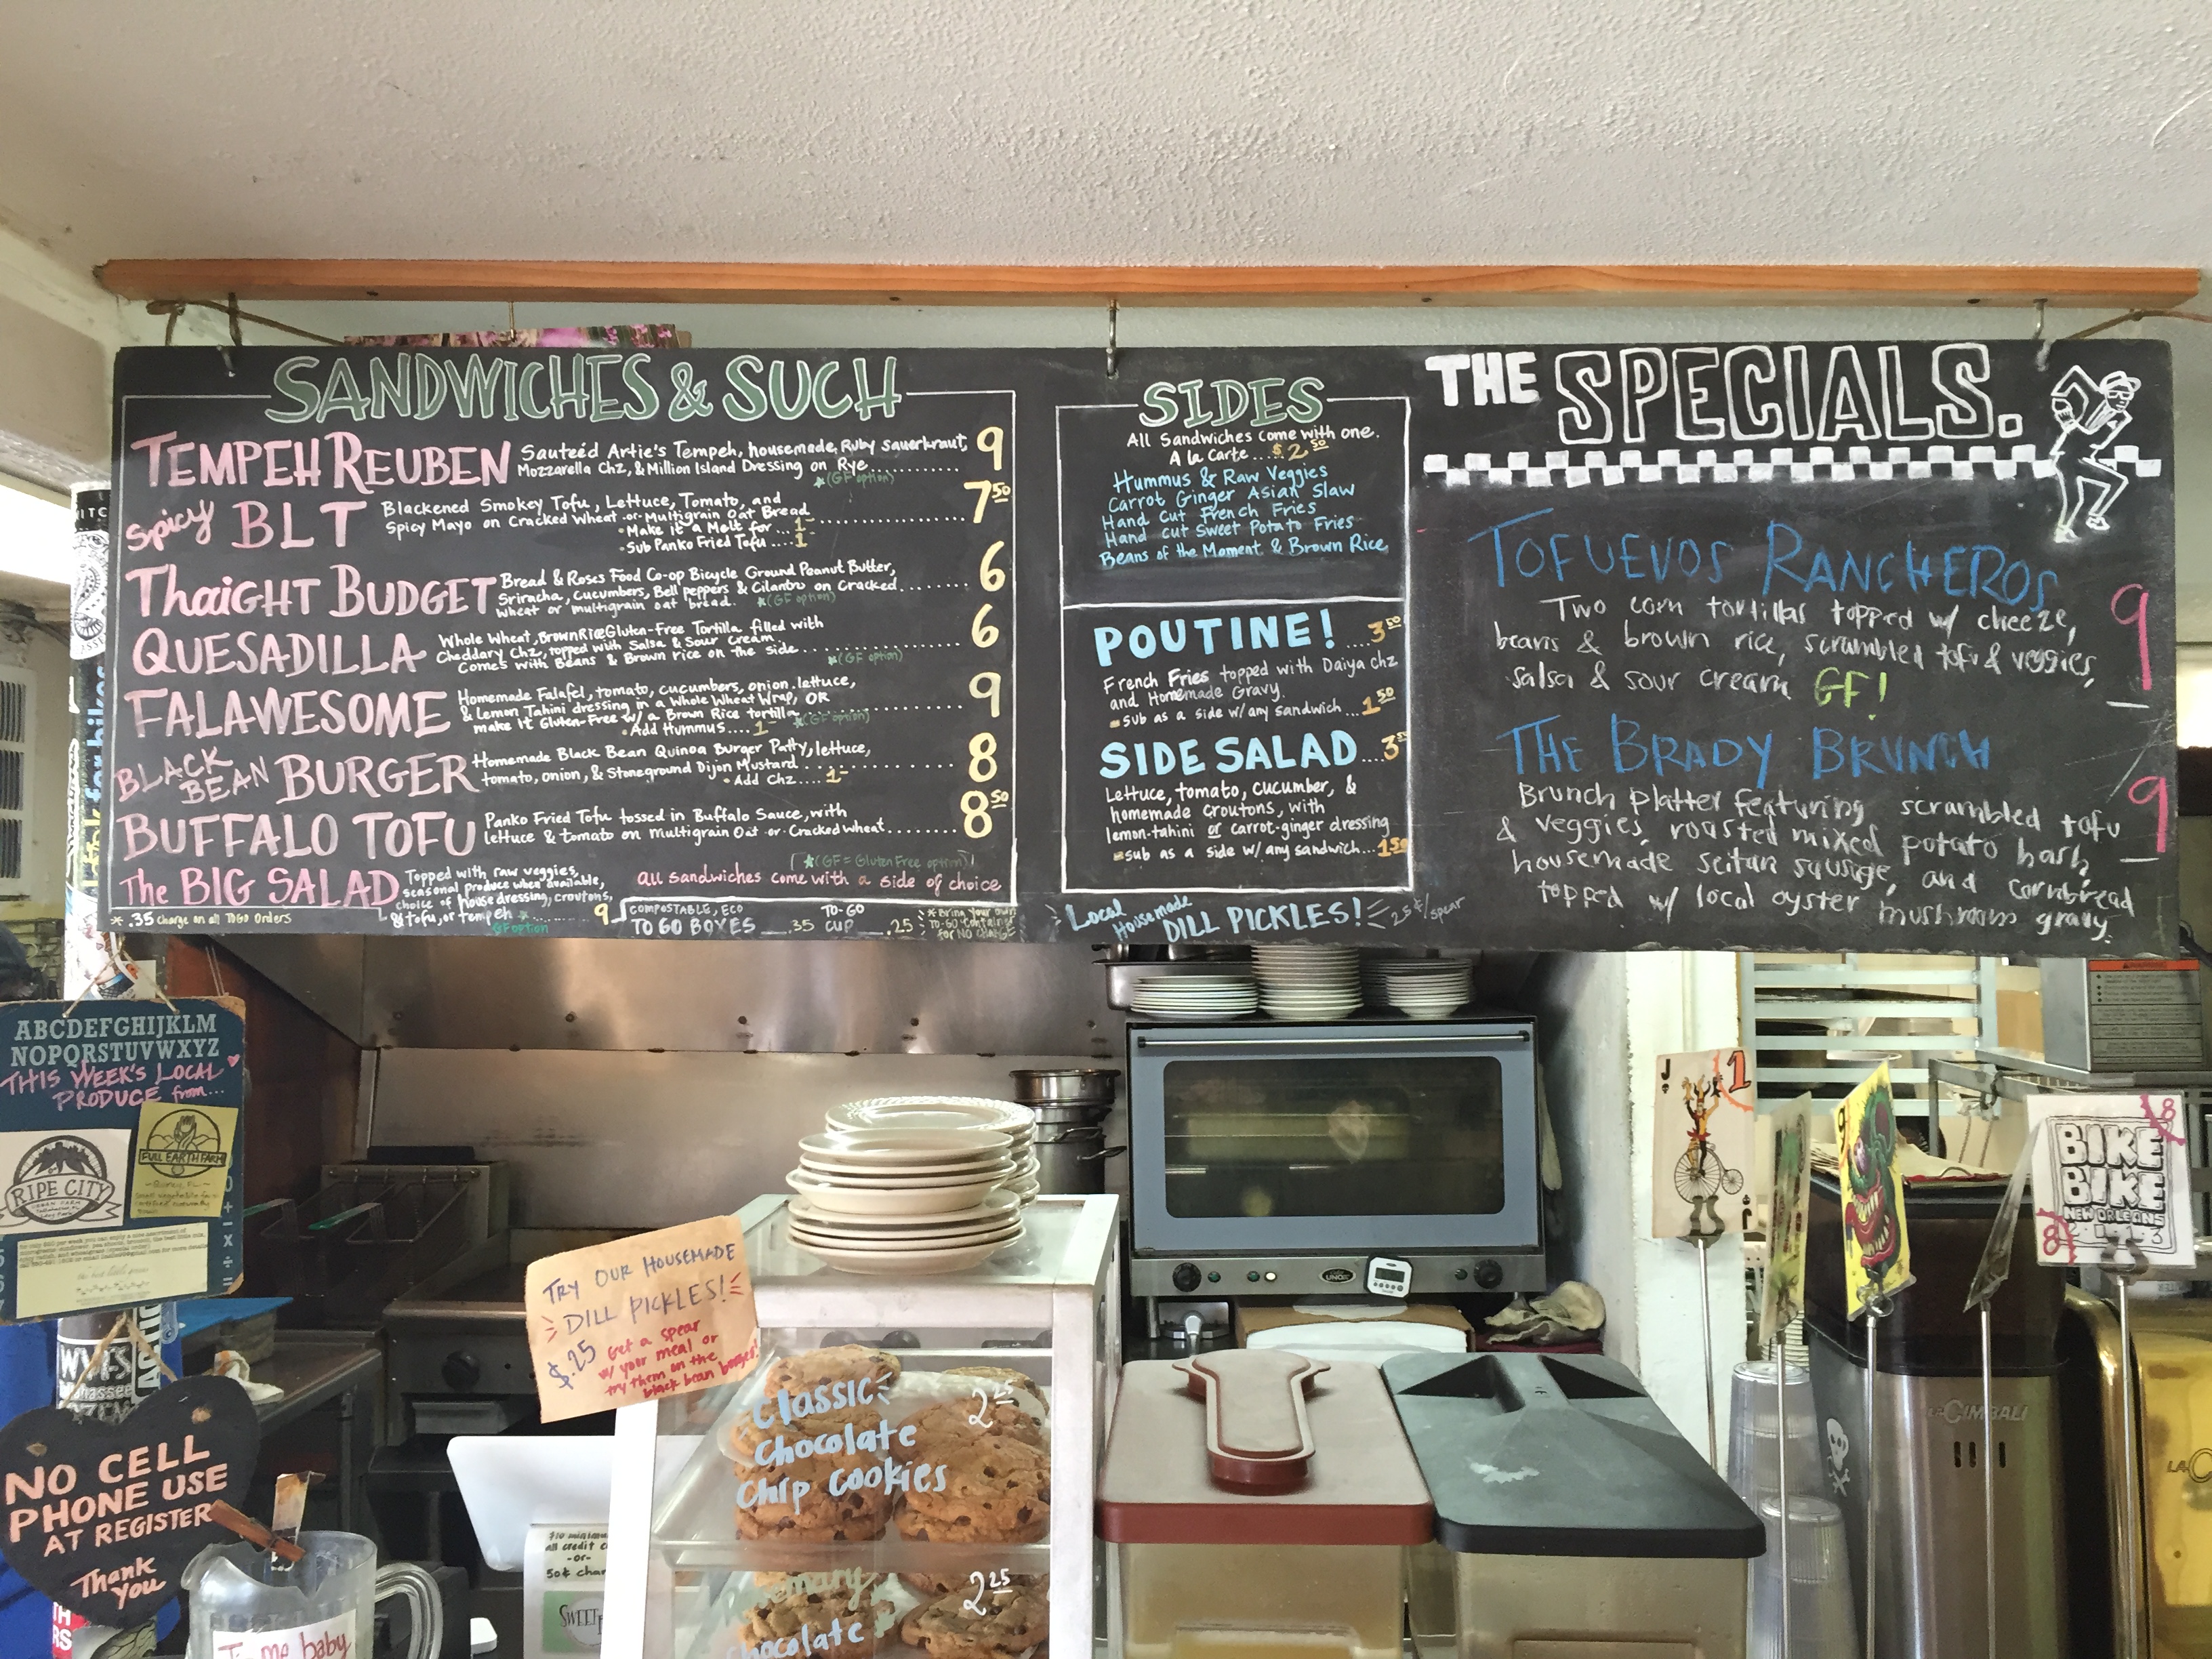 SANDWICHES & SUCH
TEMPEH REUBEN Sauteéd Artie's Tempeh, housemade Ruby sauerkraut, 9
Mozzarella Chz, & Million Island Dressing on Rye..........
*(GF option)
Spicy BLT Blackened Smokey Tofu, Lettuce, Tomato, and 7 50
Spicy Mayo on Cracked Wheat -or- Multigrain Oat Bread
• Make it a Melt for ... 1-
• Sub Panko Fried Tofu .... 1-
ThaiGHT BUDGET Bread & Roses Food Co-op Bicycle Ground Peanut Butter, 6
Sriracha, Cucumbers, Bell peppers & Cilantro on Cracked
wheat or multigrain oat bread. *(GF option)
QUESADILLA Whole Wheat, Brown Rice Gluten-Free Tortilla filled with 6
Cheddary Chz, topped with Salsa & Sour Cream
Comes with Beans & Brown rice on the side
*(GF option)
FALAWESOME Homemade Falafel, tomato, cucumbers, onion, lettuce, 9
& Lemon Tahini dressing in a Whole Wheat Wrap, OR
make it Gluten-Free w/ a Brown Rice tortilla *(GF option)
• Add Hummus.... 1-
BLACK BEAN BURGER Homemade Black Bean Quinoa Burger Patty, lettuce, 8
tomato, onion, & Stoneground Dijon Mustard
• Add Chz.... 1-
BUFFALO TOFU Panko Fried Tofu tossed in Buffalo Sauce, with 8 50
lettuce & tomato on Multigrain Oat -or- Cracked Wheat
*(GF = Gluten Free option)
The BIG SALAD Topped with raw veggies,
seasonal produce when available,
choice of house dressing, croutons,
& tofu, or tempeh ........ 9
GF option
all sandwiches come with a side of choice
* .35 Charge on all TOGO orders
COMPOSTABLE, ECO
TO GO BOXES .35
TO-GO
CUP .25
* Bring your own
TO-GO Container
for NO CHARGE
SIDES
All Sandwiches come with one.
A la Carte ....$2 50
Hummus & Raw Veggies
Carrot Ginger Asian Slaw
Hand Cut French Fries
Hand cut Sweet Potato Fries
Beans of the Moment & Brown Rice
POUTINE! ....3 50
French Fries topped with Daiya Chz
and Homemade Gravy.
sub as a side w/ any sandwich ...1 50
SIDE SALAD ....3 50
Lettuce, tomato, cucumber, &
homemade croutons, with
lemon-tahini or carrot-ginger dressing
sub as a side w/ any sandwich...1 50
Local Housemade DILL PICKLES! 25¢/spear
THE SPECIALS.
TOFUEVOS RANCHEROS
Two corn tortillas topped w/ cheeze, 9
beans & brown rice, scrambled tofu & veggies,
salsa & sour cream GF!
THE BRADY BRUNCH
Brunch platter featuring scrambled tofu 9
& veggies, roasted mixed potato hash,
housemade seitan sausage, and cornbread
topped w/ local oyster mushroom gravy.
ABCDEFGHIJKLM
NOPQRSTUVWXYZ
THIS WEEK'S LOCAL
PRODUCE from...
RIPE CITY
FULL EARTH FARM
NO CELL
PHONE USE
AT REGISTER
Thank
You
TRY OUR HOUSEMADE
DILL PICKLES!
$.25 Get a spear
w/ your meal or
try them on the
black bean burger!
Classic
Chocolate
Chip Cookies
2 25
Chocolate
2 25
all credit
-or-
50¢
me baby
UNOX
J
1
BIKE
BIKE
NEW ORLEANS
8
8
LA CIMBALI
WARNING